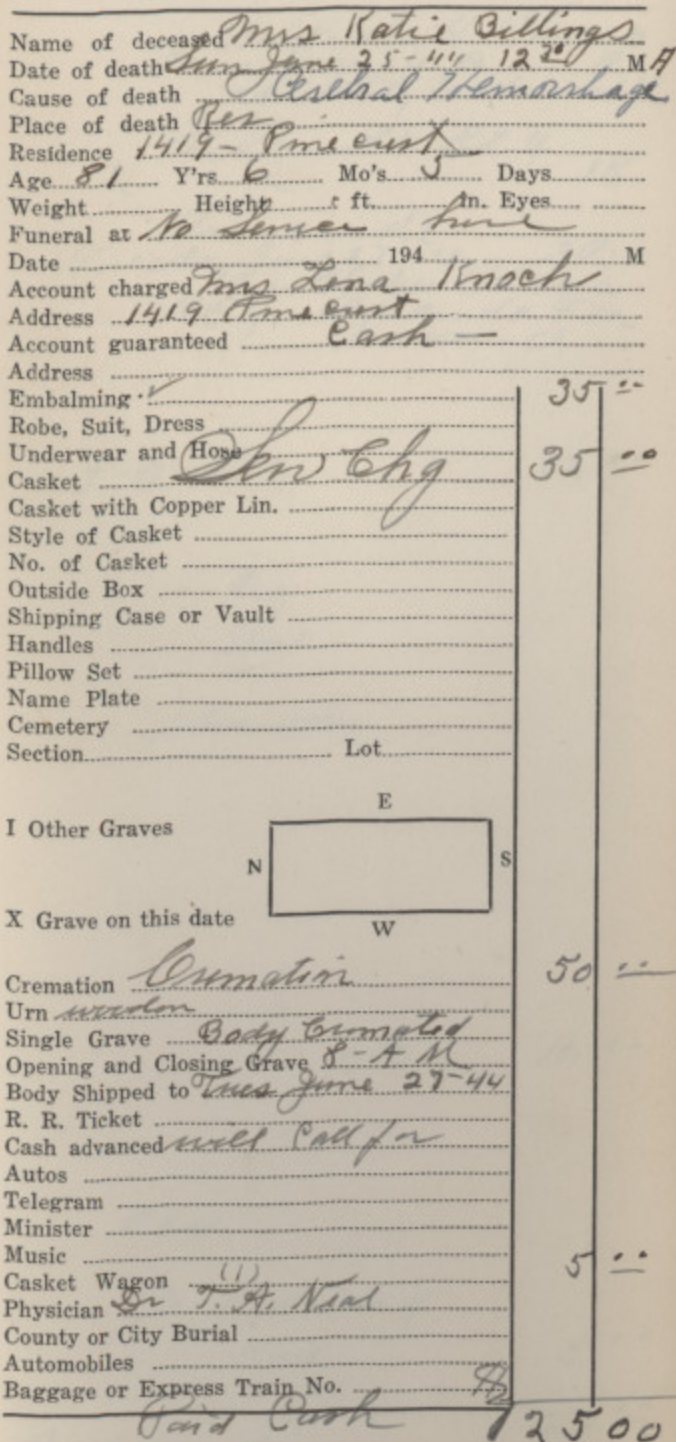 Name of deceased Mrs Katie Billings
Date of death Sun June 25-44 12 30 M A
Cause of death Cerebral Hemorrhage
Place of death Res
Residence 1419 - Pinecrest
Age 81 Y'rs 6 Mo's 5 Days
Weight Height ft. in. Eyes
Funeral at No Service here
Date 194 M
Account charged Mrs Lena Knoch
Address 1419 Pinecrest
Account guaranteed Cash -
Address
Embalming ✓ 35 00
Robe, Suit, Dress
Underwear and Hose Serv Chg 35 00
Casket
Casket with Copper Lin.
Style of Casket
No. of Casket
Outside Box
Shipping Case or Vault
Handles
Pillow Set
Name Plate
Cemetery
Section Lot
E
I Other Graves
N S
X Grave on this date
W
Cremation Cremation 50 00
Urn wooden
Single Grave Body Cremated
Opening and Closing Grave 8 - A M
Body Shipped to Tues June 27-44
R. R. Ticket
Cash advanced will Call for
Autos
Telegram
Minister
Music 5 00
Casket Wagon (1)
Physician Dr T. A. Neal
County or City Burial
Automobiles
Baggage or Express Train No.
Paid Cash 125 00